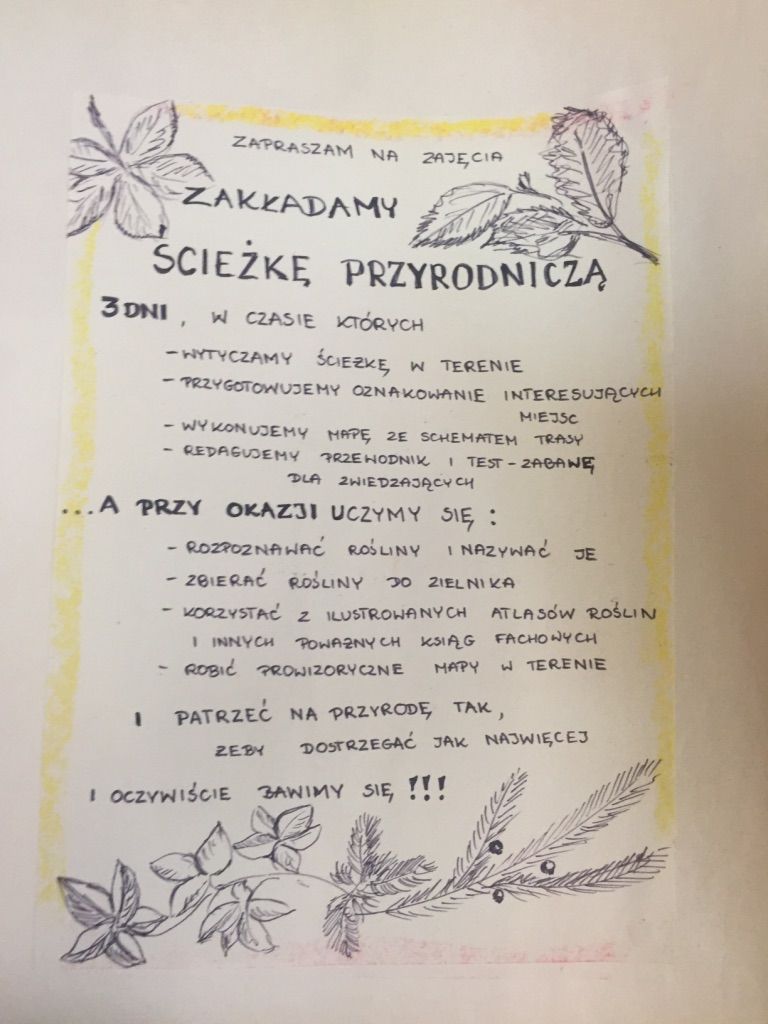 ZAPRASZAM NA ZAJĘCIA
ZAKŁADAMY
ŚCIEŻKĘ PRZYRODNICZĄ
3 DNI, W CZASIE KTÓRYCH
- WYTYCZAMY ŚCIEŻKĘ W TERENIE
- PRZYGOTOWUJEMY OZNAKOWANIE INTERESUJĄCYCH
MIEJSC
- WYKONUJEMY MAPĘ ZE SCHEMATEM TRASY
- REDAGUJEMY PRZEWODNIK I TEST-ZABAWĘ
DLA ZWIEDZAJĄCYCH
...A PRZY OKAZJI UCZYMY SIĘ:
- ROZPOZNAWAĆ ROŚLINY I NAZYWAĆ JE
- ZBIERAĆ ROŚLINY DO ZIELNIKA
- KORZYSTAĆ Z ILUSTROWANYCH ATLASÓW ROŚLIN
I INNYCH POWAŻNYCH KSIĄG FACHOWYCH
- ROBIĆ PROWIZORYCZNE MAPY W TERENIE
I PATRZEĆ NA PRZYRODĘ TAK,
ŻEBY DOSTRZEGAĆ JAK NAJWIĘCEJ
I OCZYWIŚCIE BAWIMY SIĘ !!!